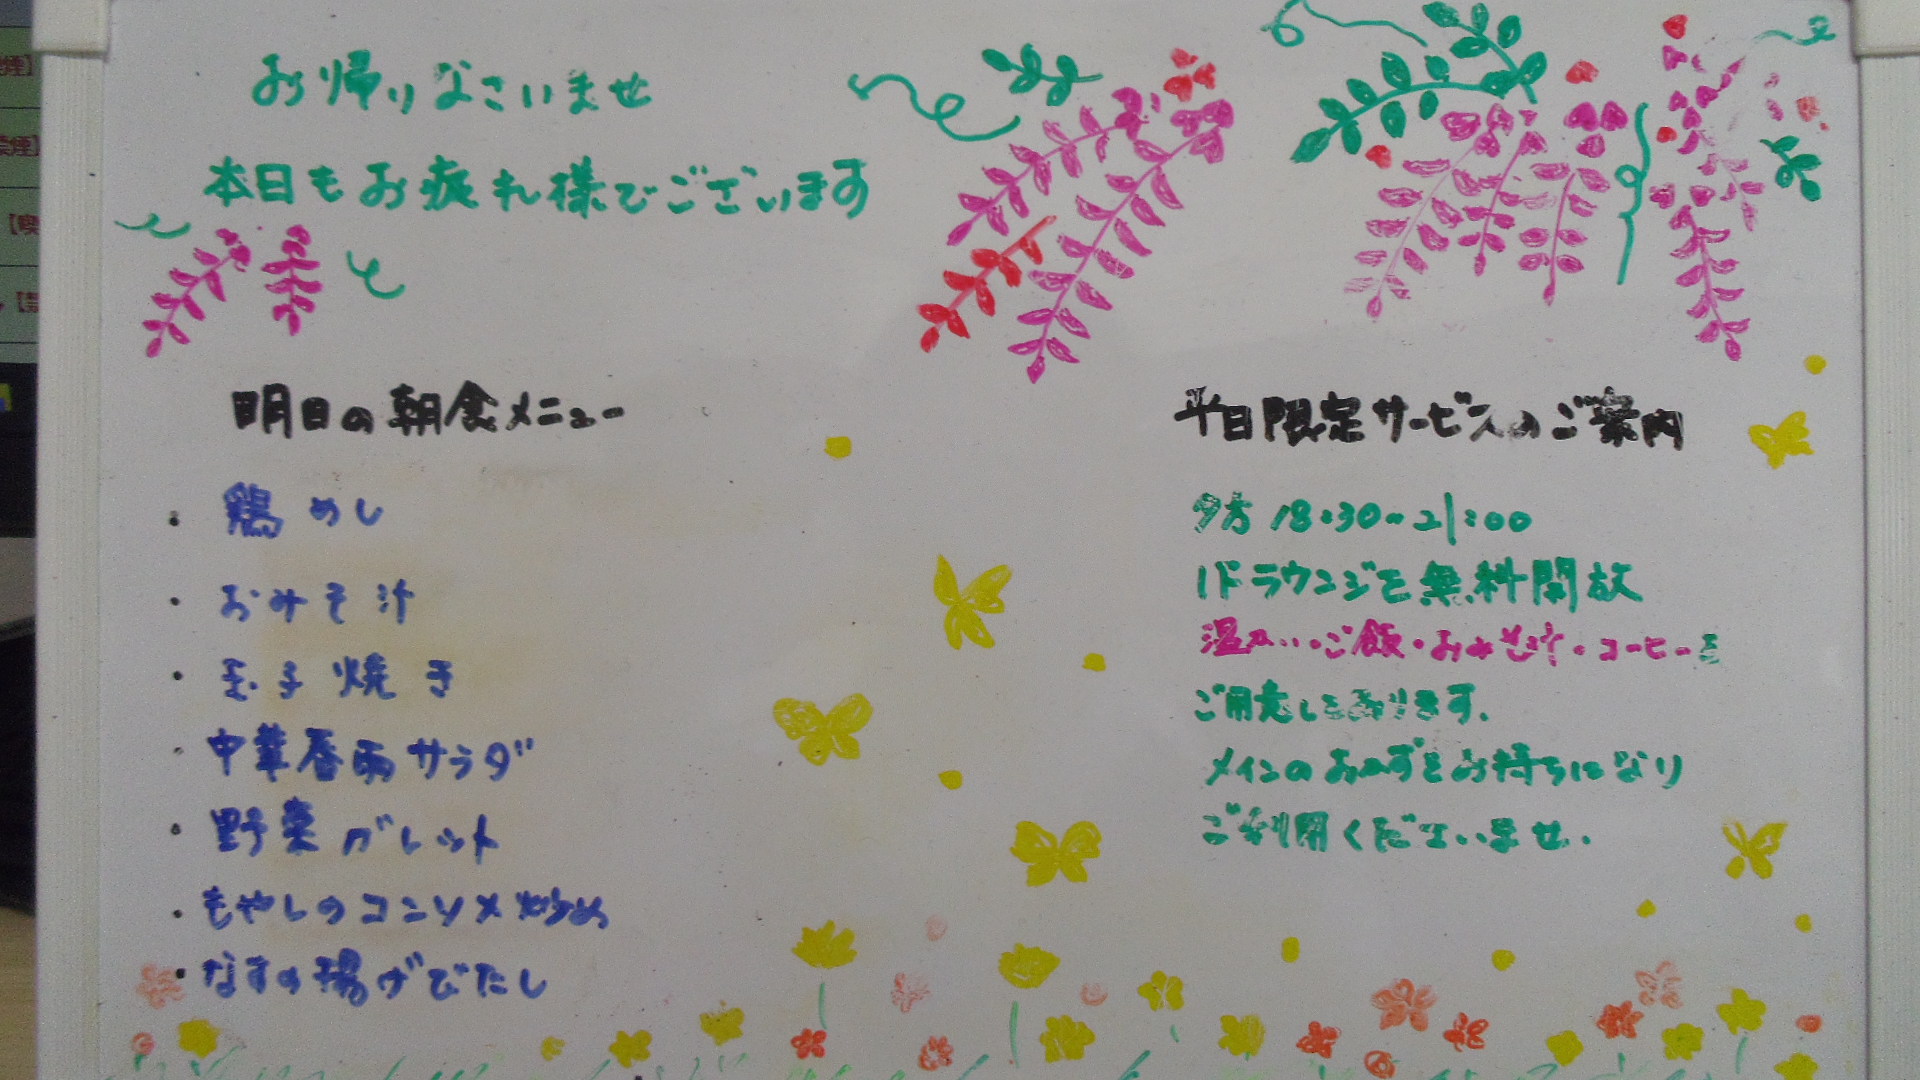 お帰りなさいませ
本日もお疲れ様でございます
明日の朝食メニュー
・鶏めし
・おみそ汁
・玉子焼き
・中華春雨サラダ
・野菜ガレット
・もやしのコンソメ炒め
・なすの揚げびたし
平日限定サービスのご案内
夕方 18:30~21:00
1Fラウンジを無料開放
温かい・ご飯・おみそ汁・コーヒーを
ご用意しております。
メインのおかずをお持ちになり
ご利用くださいませ.